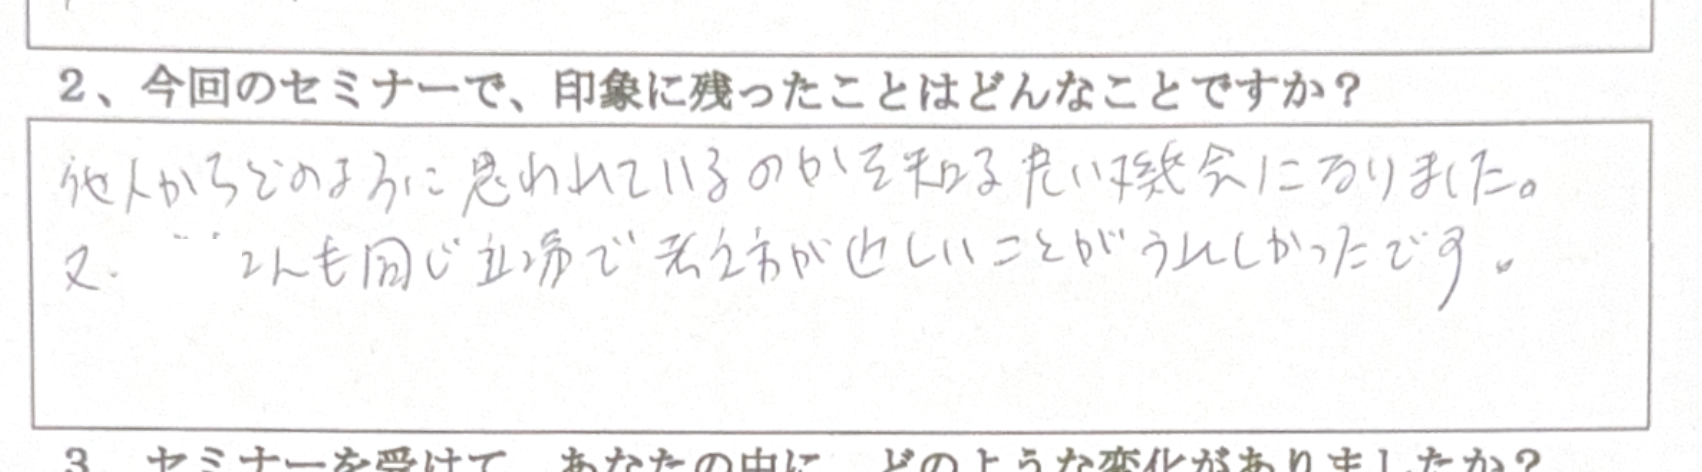 2、今回のセミナーで、印象に残ったことはどんなことですか？
他人からどのように思われているのかを知る良い機会になりました。
又、 さんも同じ立場で考え方が近しいことがうれしかったです。
3、セミナーを受けて、あなたの中に、どのような変化がありましたか？